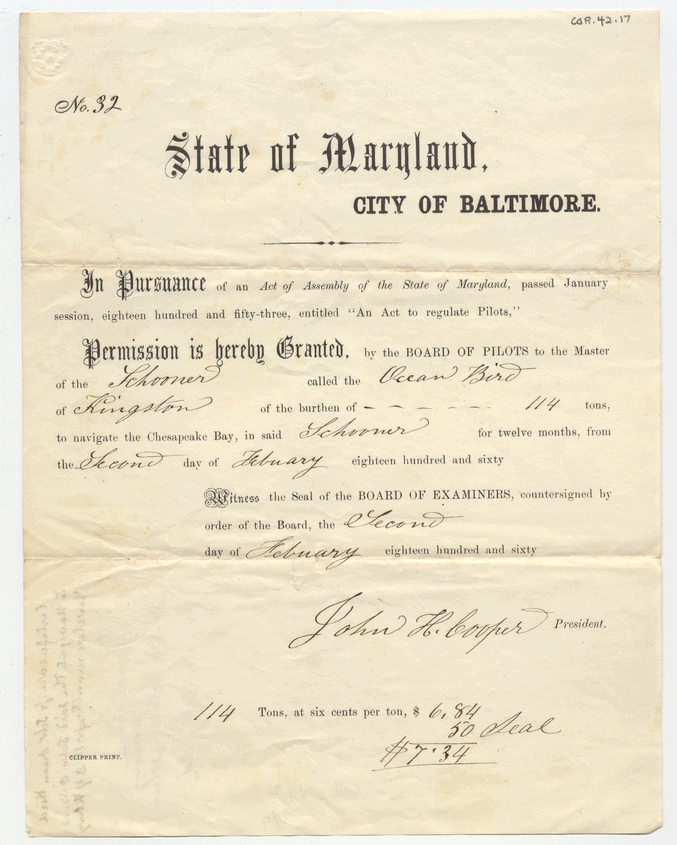 COR.42.17
No. 32
State of Maryland,
CITY OF BALTIMORE.
In Pursuance of an Act of Assembly of the State of Maryland, passed January
session, eighteen hundred and fifty-three, entitled "An Act to regulate Pilots,"
Permission is hereby Granted, by the BOARD OF PILOTS to the Master
of the Schooner called the Ocean Bird
of Kingston of the burthen of - - - - - 114 tons,
to navigate the Chesapeake Bay, in said Schooner for twelve months, from
the Second day of Febuary eighteen hundred and sixty
Witness the Seal of the BOARD OF EXAMINERS, countersigned by
order of the Board, the Second
day of Febuary eighteen hundred and sixty
John H. Cooper President.
114 Tons, at six cents per ton, $ 6,84
50 Seal
$7.34
CLIPPER PRINT.